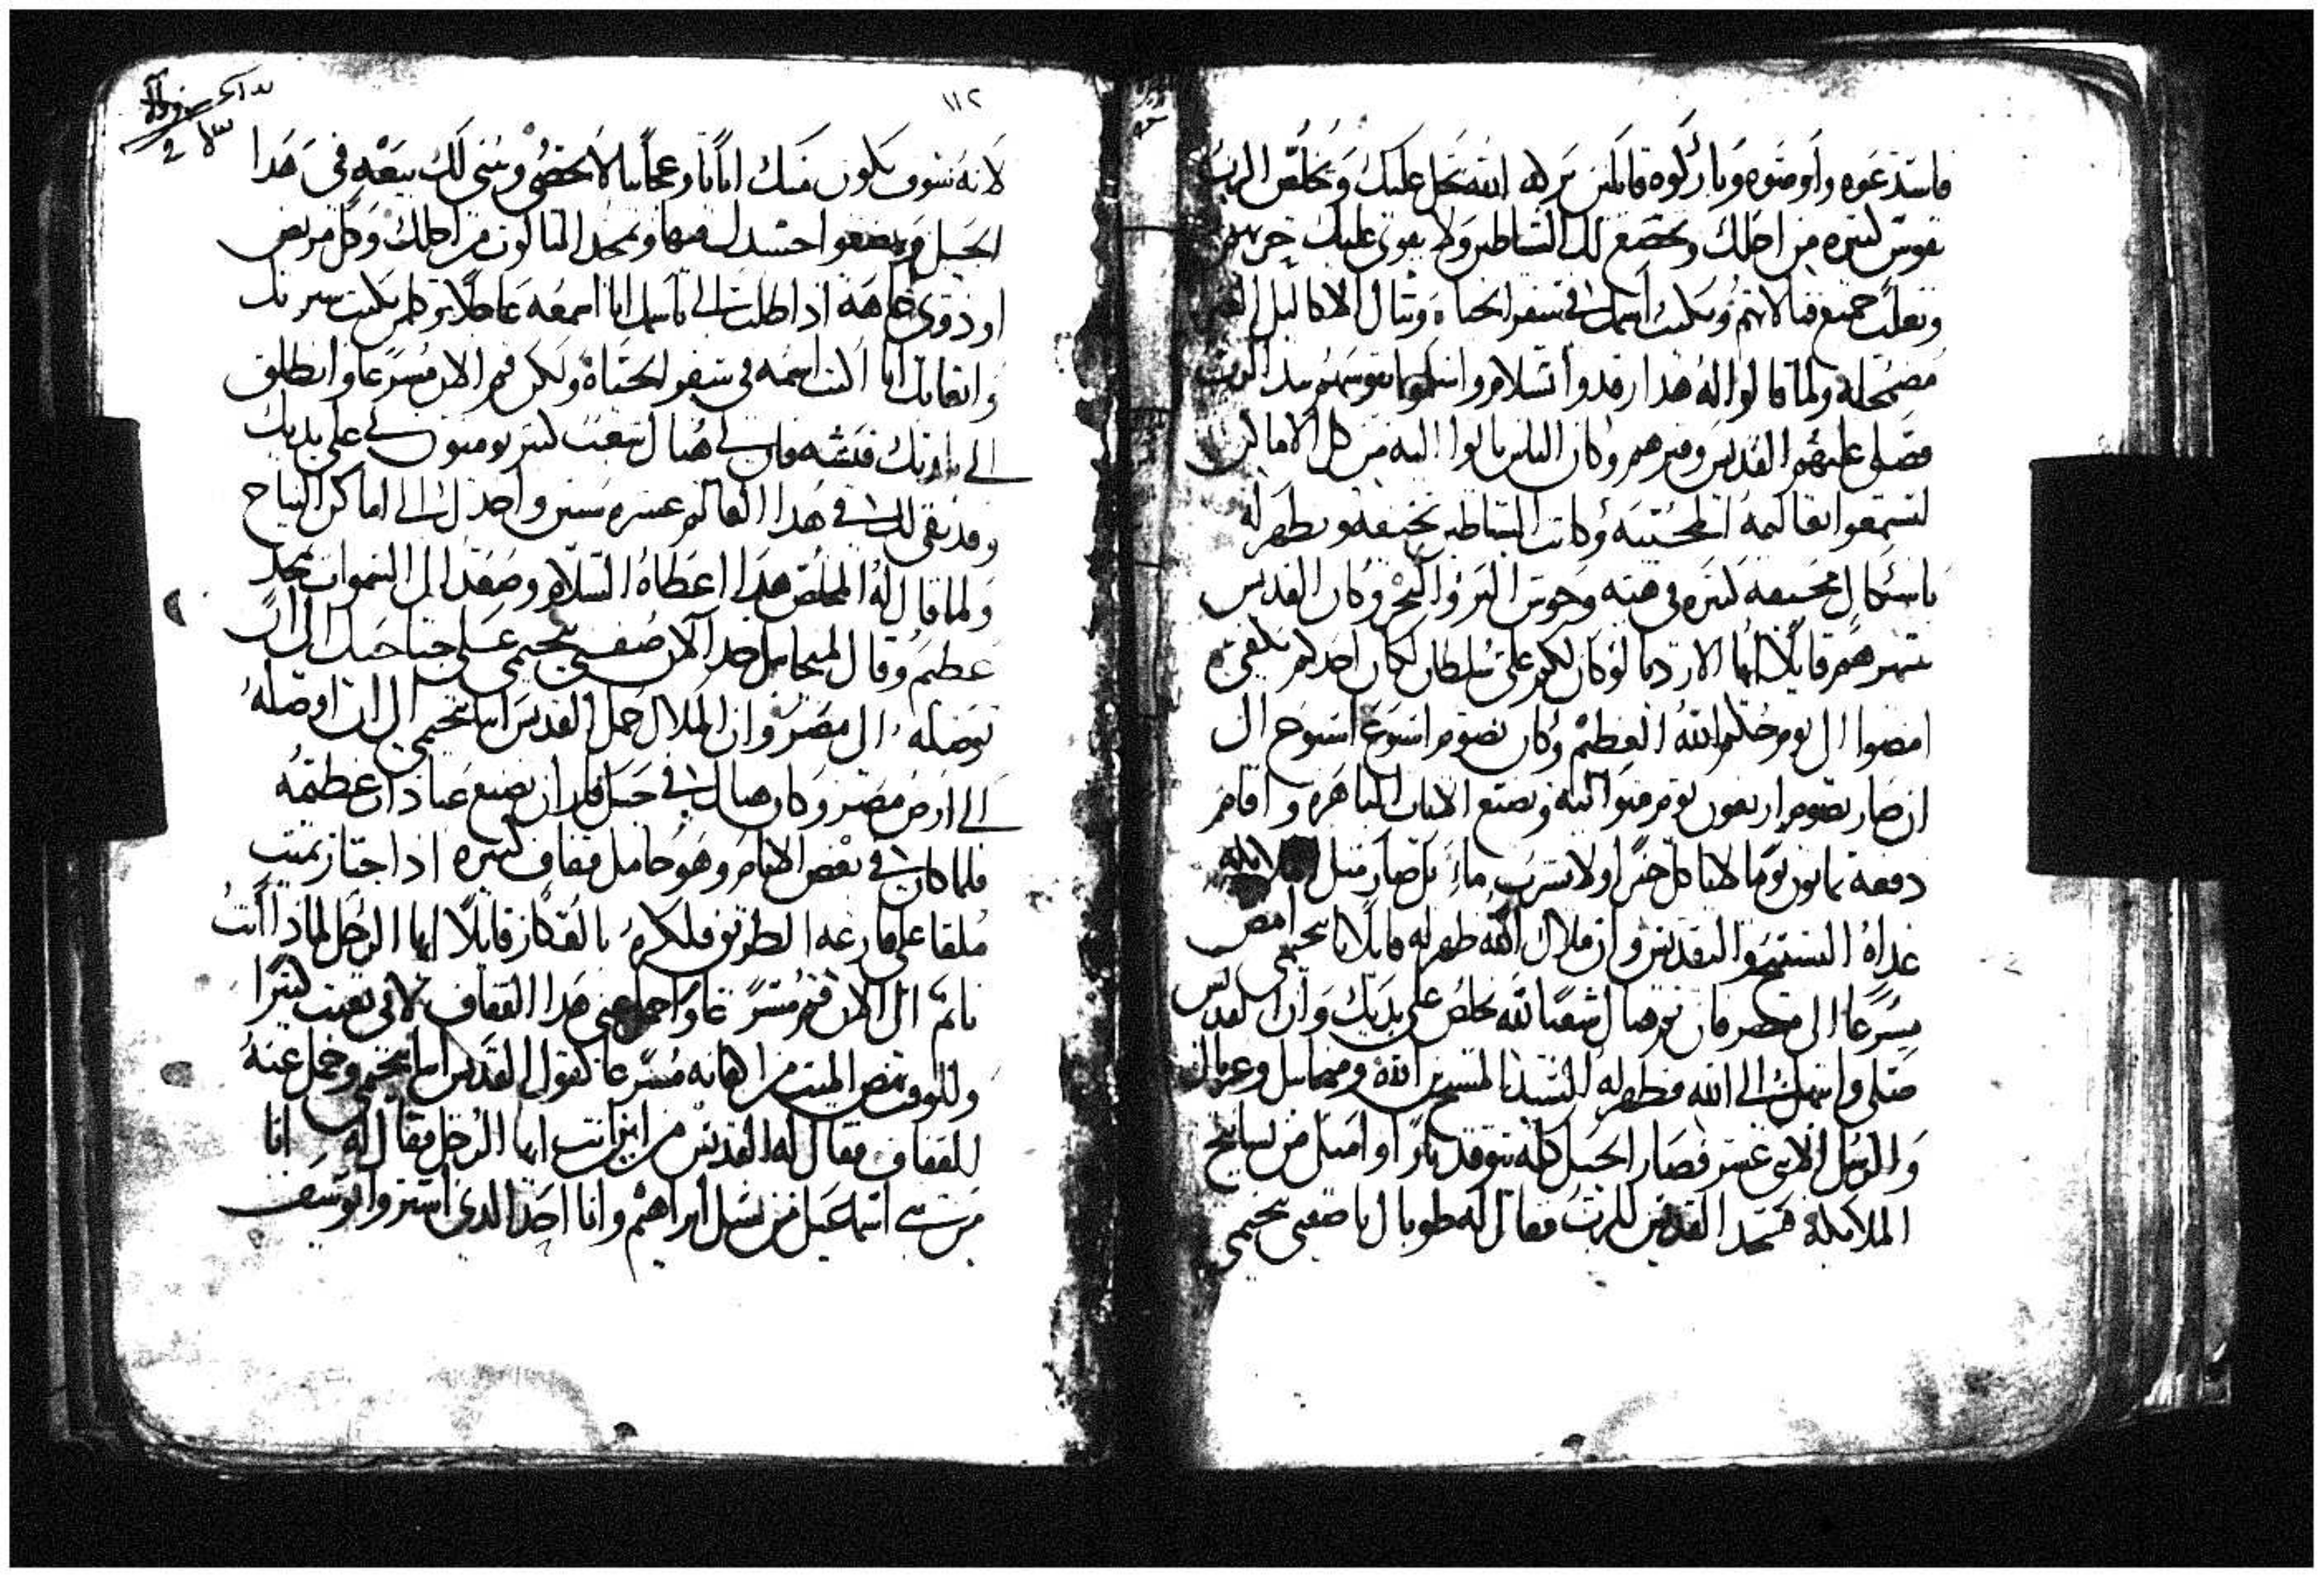 فاستدعوه واوصوه وباركوه قايلين بركة الله تحل عليك وتخلص الرب
نفوس كتيره من اجلك وتخضع لك الشياطين ولا يقوى عليك
وتغلب جميع قتالاتهم ويكتب اسمك في سفر الحياه وتنال الاكاليل الغير
مضمحله ولما قالوا له هدا رقدوا بسلام واسلموا نفوسهم بيد الرب
فصلى عليهم القديس وقبرهم وكان الناس ياتوا اليه من كل الاماكن
ليسمعوا تعاليمه المحييه وكانت الشياطين تخيفه ويظهر له
باشكال مخيفه كتيره في هيه وحوش البر والبحر وكان القديس
ينهرهم قايلا ايها الاردياء لو كان لكم علي سلطان لكان احدكم يكفي
امضوا الى يوم حكم الله العظيم وكان يصوم اسبوع اسبوع الى
ان صار يصوم اربعون يوم متواليه ويصنع الايات الباهره واقام
دفعه تمانون يوما لا ياكل خبزا ولا يشرب ماء بل صار متل الملايكه
غداه التسبيح والتقديس وان ملاك الله ظهر له قايلا يا بخيمي امض
مسرعا الى مصر فان هناك شعبا لله يخلص على يديك وان القديس
صلى وابتهل الى الله فظهر له السيد المسيح ابن الله وميخاييل وغبريال
والرسل الاثني عشر فصار الجبل كله يتوقد نارا وامتلا من تسابيح
الملايكه فسجد القديس للرب فقال له طوباك يا صفيي بخيمي
١١٢
لانه سوف يكون منك ايات وعجايب لا تحصى وتبنى لك بيعه في هدا
الجبل ويضعوا جسدك فيها وتمجد الناس من اجلك وكل مريض
او ذوي عاهه ادا طلب الي باسمك انا اسمعه عاجلا ومن يكتب سيرتك
واتعابك انا اكتب اسمه في سفر الحياه ولكن قم الان مسرعا وانطلق
الى بلدتك فان لي هناك شعب كتير يومنون بي على يديك
وقد بقى لك في هدا العالم عشره سنين واخدك الى اماكن النياح
ولما قال له المخلص هدا اعطاه السلام وصعد الى السموات بمجد
عظيم وقال لميخاييل خد الان صفيي بخيمي على جناحيك الى ان
توصله الى مصر وان الملاك حمل القديس انبا بخيمي الى ان اوصله
الى ارض مصر وكان هناك في جبل فاران يصنع عبادات عظيمه
فلما كان في بعض الايام وهو حامل قفاف كتيره ادا اجتاز بميت
ملقا على قارعه الطريق فلكزه بالعكاز قايلا ايها الرجل لمادا انت
نايم الى الان قم مسرعا واحمل عني هدا القفاف لاني تعبت كتيرا
وللوقت نهض الميت مسرعا كقول القديس انبا بخيمي وحمل عنه
القفاف فقال له القديس من اين انت ايها الرجل فقال له انا
من بني اسماعيل من نسل ابراهيم وانا احد الدي اشتروا يوسف